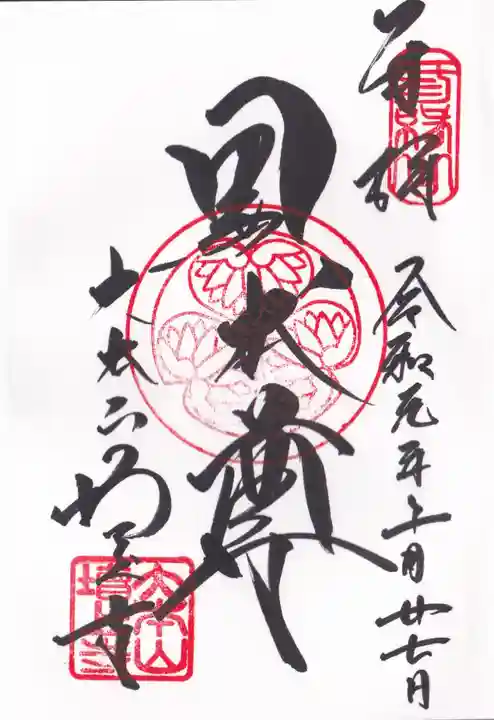 奉拝
令和元年 月廿七日
黒本尊
大本山 増上寺
大本山
増上寺